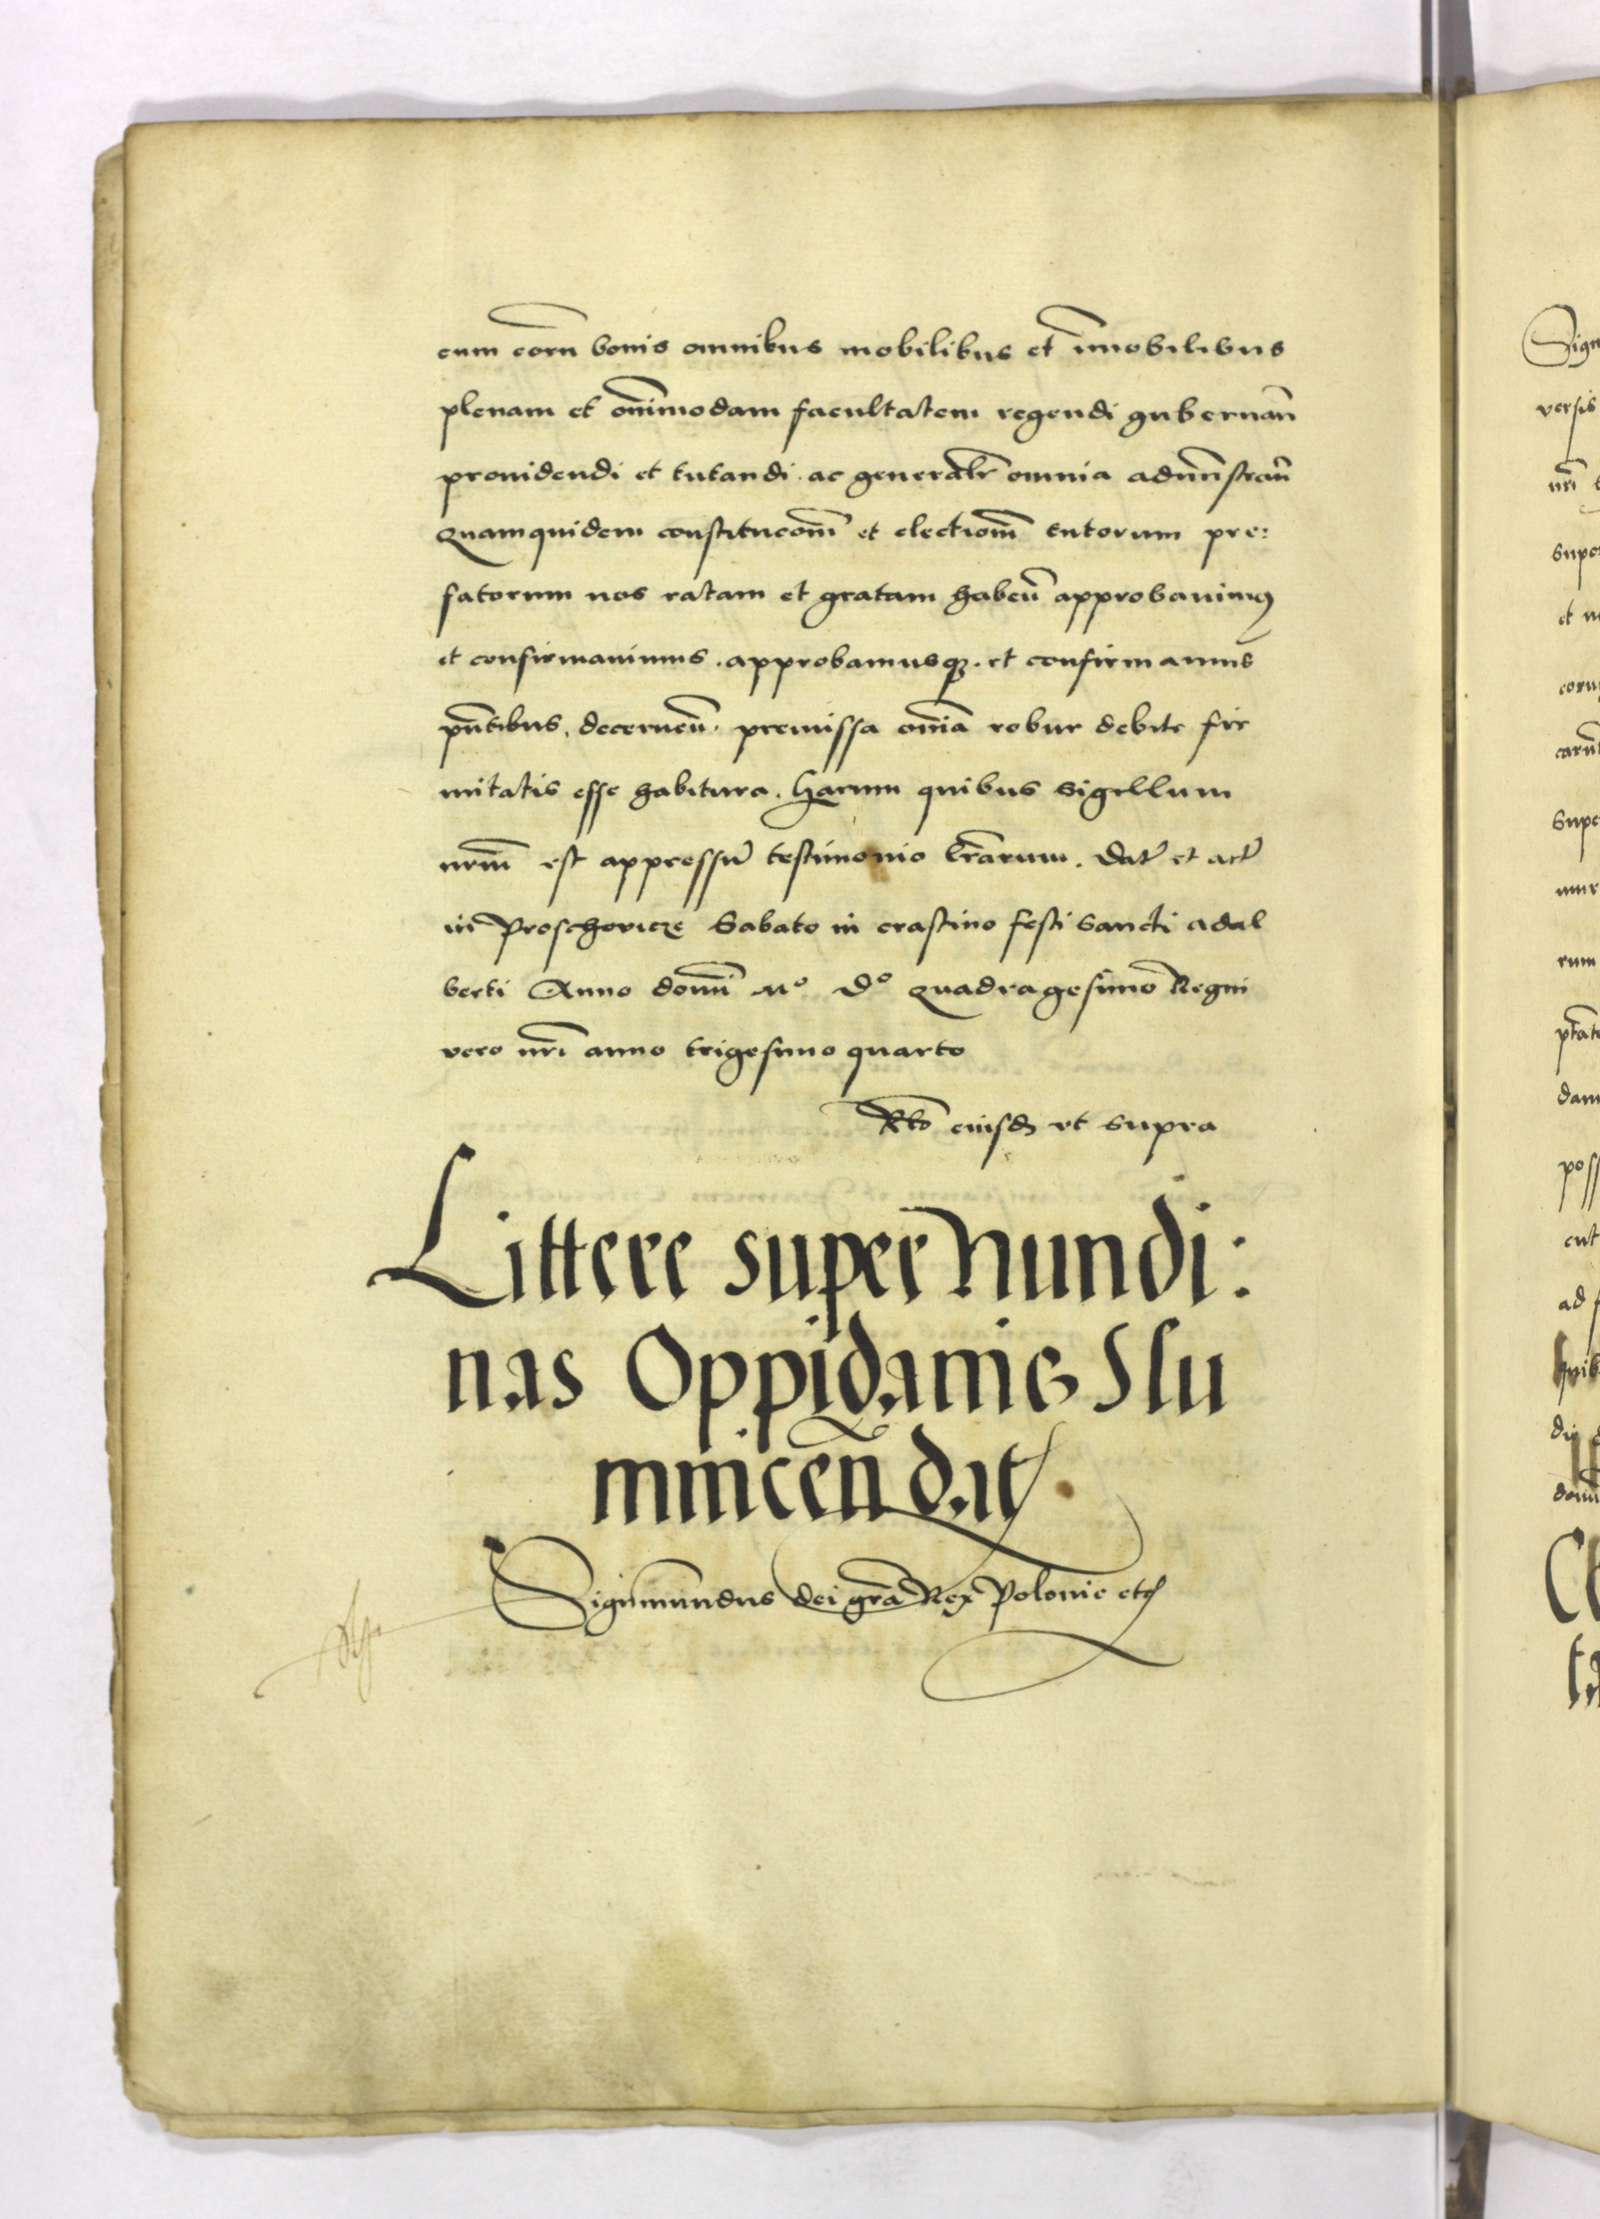 cum eorū bonis omnibus mobilibus et im̄obilibus
plenam et om̄imodam facultatem regendi gubernan̄
prouidendi et tutandi . ac generalr̄ omnia admn̄istran̄
Quamquidem constitucōm̄ et electiōm̄ tutorum pre:
fatorum nos ratam et gratam haben̄ approbauimꝰ
et confirmauimus . approbamusqꝫ . et confirmamus
pn̄tibus . decernen̄ . premissa om̄ia robur debite fir
mitatis esse habitura . Harum quibus Sigillum
nrm̄ est appressū testimonio lr̄arum . Dat̄ et act̄
in Proschovicze Sabato in crastino festi Sancti Adal
berti Anno domī Mº Dº Quadragesimo Regni
vero nrī anno trigesimo quarto
Rtō eiusdē vt supra
Littere super Nundi:
nas Oppidanis Slu
mnicen̄ dat
Sigismundus dei grā Rex Polonie etc
Sign
versis
nrī
super
et
corum
Super
rum
dam
poss
ad